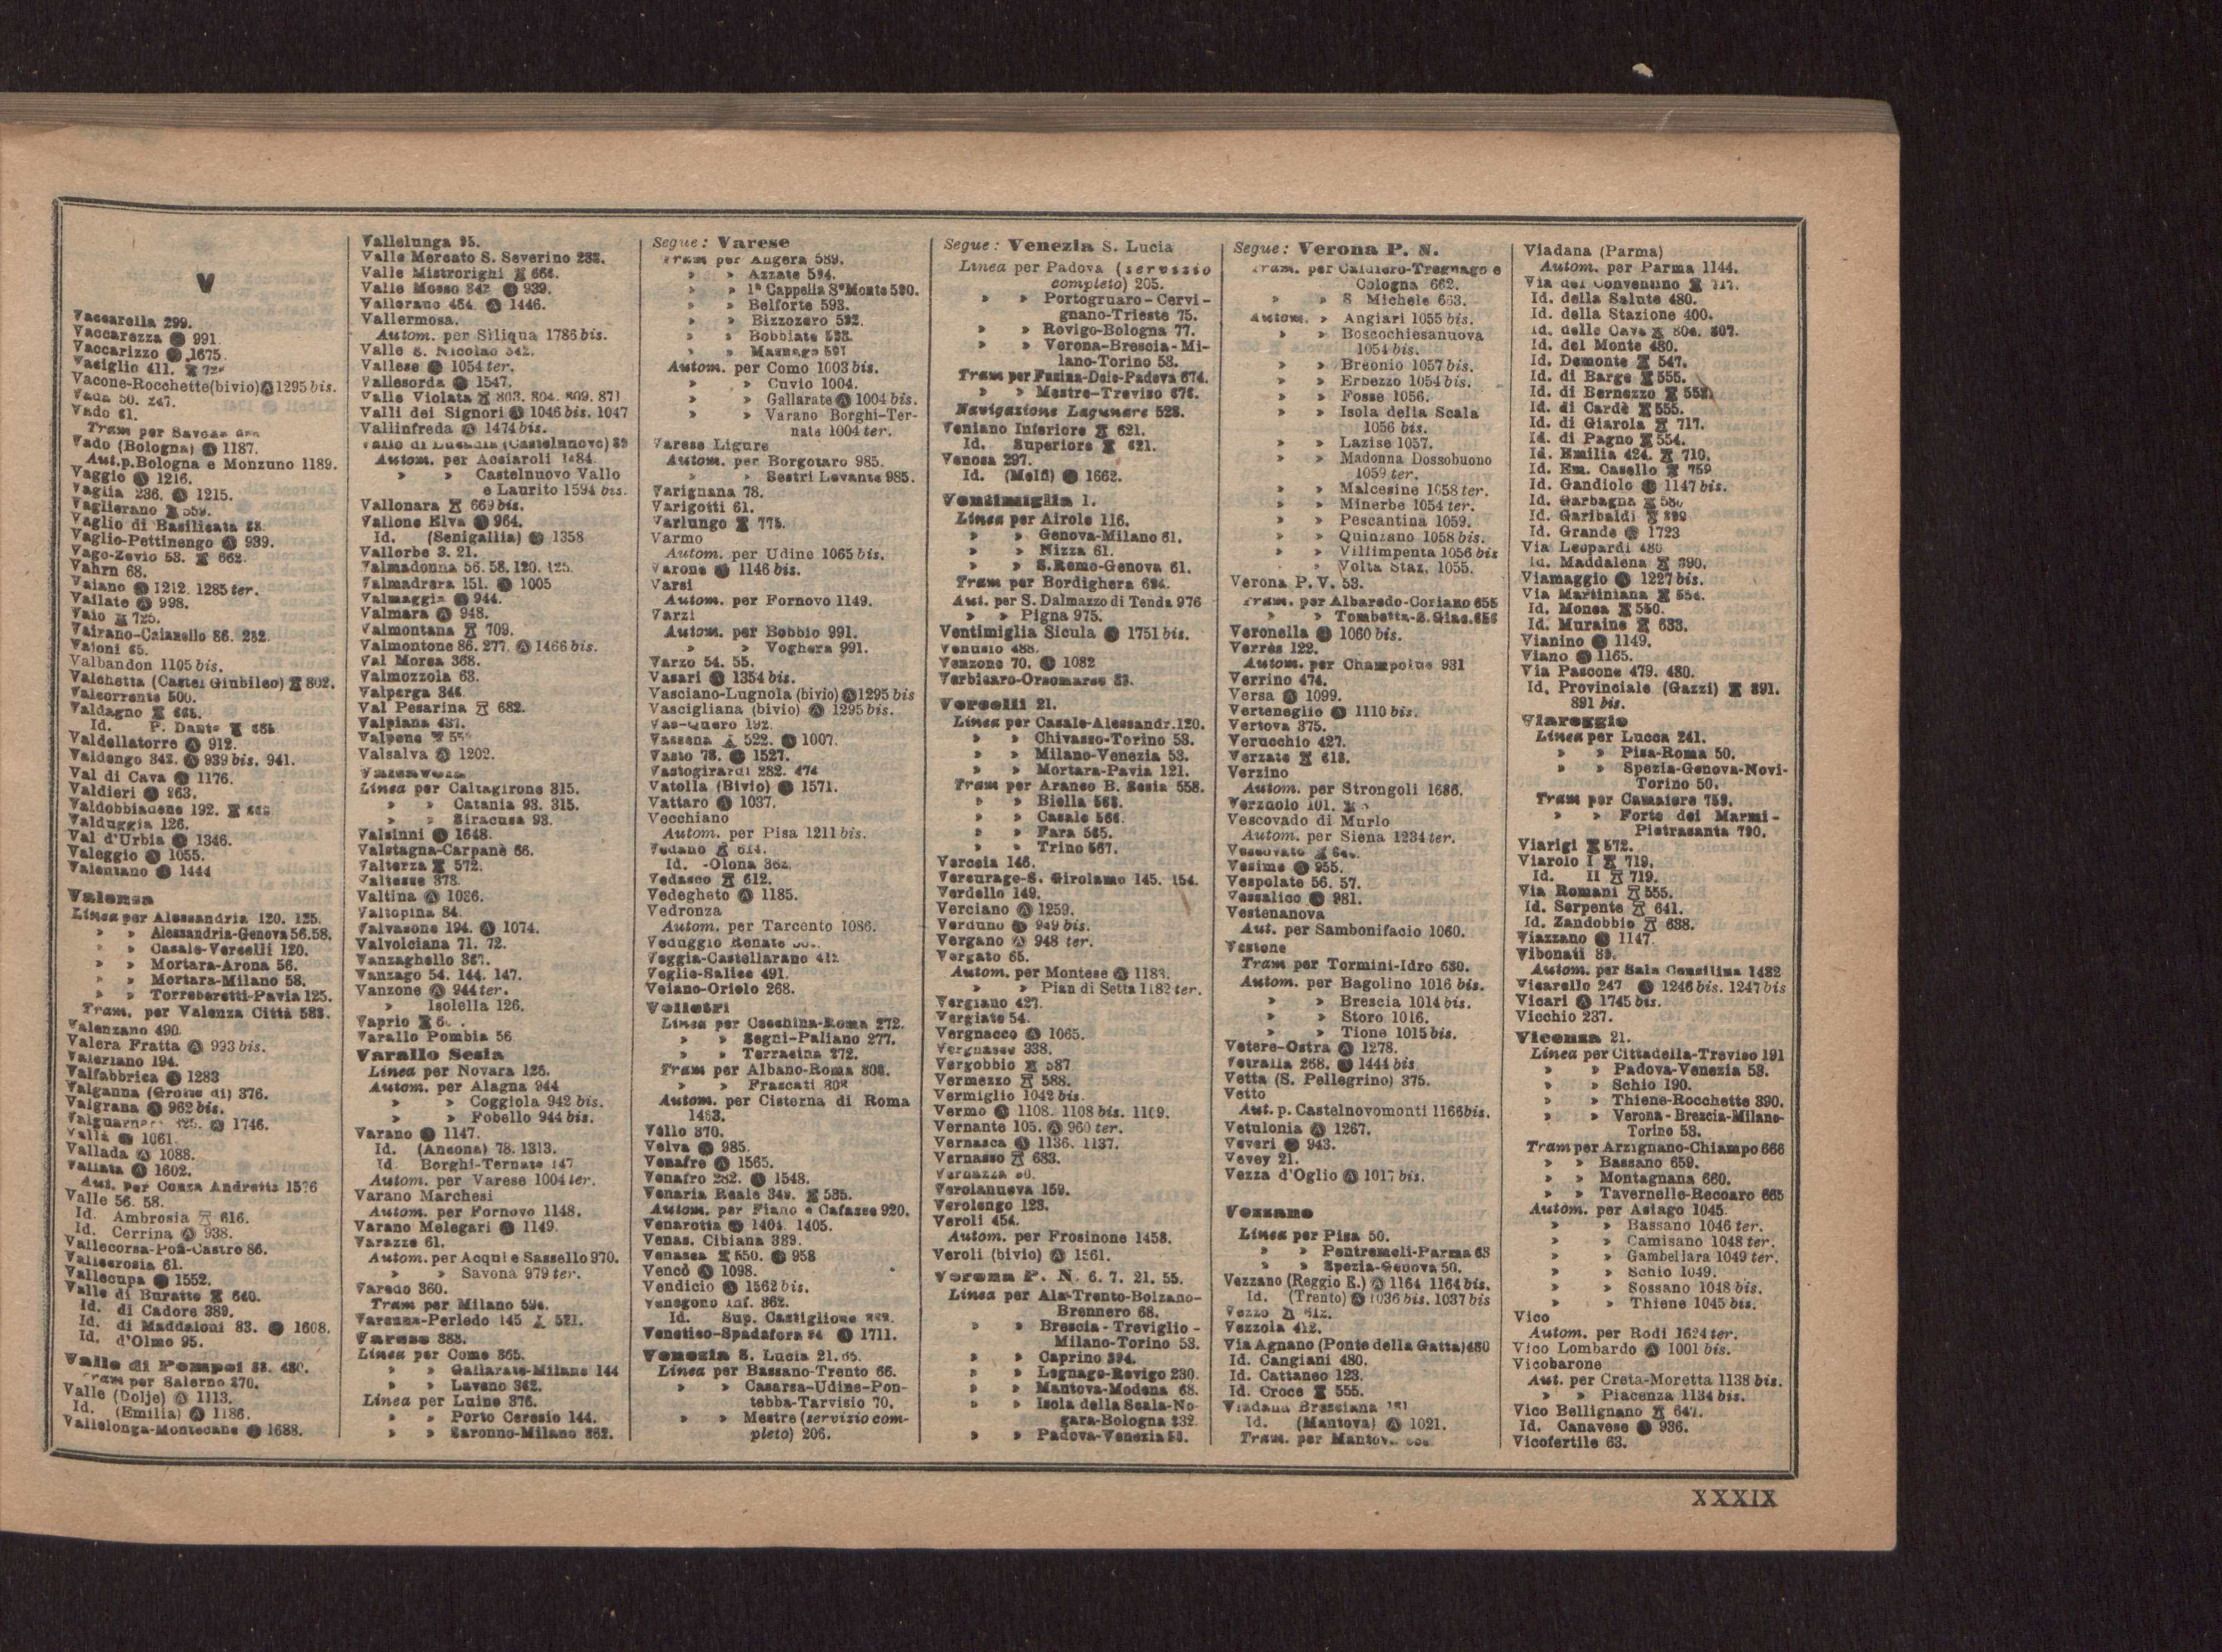 V
Vaccarella 299.
Vaccarezza Ⓐ 991
Vaccarizzo Ⓐ 1675.
Vaciglio 411.
Vacone-Rocchette(bivio) Ⓐ 1295 bis.
Vada 50. 247.
Vado 61.
Tram per Savona
Vado (Bologna) Ⓐ 1187.
Aut.p.Bologna e Monzuno 1189.
Vaggio Ⓐ 1216.
Vaglia 236. Ⓐ 1215.
Vaglierano 559.
Vaglio di Basilicata 88.
Vaglio-Pettinengo Ⓐ 939.
Vago-Zevio 53. 662.
Vahrn 68.
Vaiano Ⓐ 1212. 1285 ter.
Vailate Ⓐ 998.
Vaio 725.
Vairano-Caianello 86. 282.
Vajoni 65.
Valbandon 1105 bis.
Valchetta (Castel Giubileo) 802.
Valcorrente 500.
Valdagno 665.
Id. P. Dante 665
Valdellatorre Ⓐ 912.
Valdengo 342. Ⓐ 939 bis. 941.
Val di Cava Ⓐ 1176.
Valdieri Ⓐ 963.
Valdobbiadene 192.
Valduggia 126.
Val d'Urbia Ⓐ 1346.
Valeggio Ⓐ 1055.
Valentano Ⓐ 1444
Valenza
Linea per Alessandria 120. 125.
» » Alessandria-Genova 56.58.
» » Casale-Vercelli 120.
» » Mortara-Arona 56.
» » Mortara-Milano 58.
» » Torreberetti-Pavia 125.
Tram. per Valenza Città 583.
Valenzano 490.
Valera Fratta Ⓐ 993 bis.
Valeriano 194.
Valfabbrica Ⓐ 1283
Valganna (Grotte di) 376.
Valgrana Ⓐ 962 bis.
Valguarnera Ⓐ 1746.
Valla Ⓐ 1061
Vallada Ⓐ 1088.
Vallata Ⓐ 1602.
Aut. per Conza Andretta 1576
Valle 56. 58.
Id. Ambrosia 616.
Id. Cerrina Ⓐ 938.
Vallecorsa-Pof-Castro 86.
Vallecrosia 61.
Vallecupa Ⓐ 1552.
Valle di Buratte 640.
Id. di Cadore 389.
Id. di Maddaloni 83. Ⓐ 1608.
Id. d'Olmo 95.
Valle di Pompei 83. 480.
Tram per Salerno 870.
Valle (Dolje) Ⓐ 1113.
Id. (Emilia) Ⓐ 1186.
Vallelonga-Montecane Ⓐ 1688.
Vallelunga 95.
Valle Mercato S. Severino 288.
Valle Mistrorighi 666.
Valle Mosso 342 Ⓐ 939.
Vallerano 464. Ⓐ 1446.
Vallermosa.
Autom. per Siliqua 1786 bis.
Valle S. Nicolao 342.
Vallese Ⓐ 1054 ter.
Vallesorda Ⓐ 1547.
Valle Violata 803. 804. 809. 871
Valli dei Signori Ⓐ 1046 bis. 1047
Vallinfreda Ⓐ 1474 bis.
Vallo di Lucania (Castelnuovo) 89
Autom. per Acciaroli 1484.
» » Castelnuovo Vallo
e Laurito 1594 bis.
Vallonara 669 bis.
Vallone Elva Ⓐ 964.
Id. (Senigallia) Ⓐ 1358
Vallorbe 3. 21.
Valmadonna 56. 58. 120. 125.
Valmadrera 151. Ⓐ 1005
Valmaggia Ⓐ 944.
Valmara Ⓐ 948.
Valmontana 709.
Valmontone 86. 277. Ⓐ 1466 bis.
Val Morea 368.
Valmozzola 63.
Valperga 344
Val Pesarina 682.
Valpiana 437.
Valpone
Valsalva Ⓐ 1202.
Valsavoia
Linea per Caltagirone 315.
» » Catania 93. 315.
» » Siracusa 93.
Valsinni Ⓐ 1648.
Valstagna-Carpanè 66.
Valterza 572.
Valtesse 373.
Valtina Ⓐ 1036.
Valtopina 84.
Valvasone 194. Ⓐ 1074.
Valvolciana 71. 72.
Vanzaghello 367.
Vanzago 54. 144. 147.
Vanzone Ⓐ 944 ter.
» Isolella 126.
Vaprio
Varallo Pombia 56
Varallo Sesia
Linea per Novara 126.
Autom. per Alagna 944
» » Coggiola 942 bis.
» » Fobello 944 bis.
Varano Ⓐ 1147.
Id. (Ancona) 78. 1313.
Id. Borghi-Ternate 147
Autom. per Varese 1004 ter.
Varano Marchesi
Autom. per Fornovo 1148.
Varano Melegari Ⓐ 1149.
Varazze 61.
Autom. per Acqui e Sassello 970.
» » Savona 979 ter.
Varedo 360.
Tram per Milano 594.
Varenna-Perledo 145 521.
Varese 383.
Linea per Como 365.
» » Gallarate-Milano 144
» » Laveno 362.
Linea per Luino 376.
» » Porto Ceresio 144.
» » Saronno-Milano 362.
Segue: Varese
Tram per Angera 589.
» » Azzate 594.
» » 1ª Cappella Sº Monte 590.
» » Belforte 593.
» » Bizzozero 592.
» » Bobbiate 588.
» » Masnago 591
Autom. per Como 1003 bis.
» » Cuvio 1004.
» » Gallarate Ⓐ 1004 bis.
» » Varano Borghi-Ter-
nate 1004 ter.
Varese Ligure
Autom. per Borgotaro 985.
» » Sestri Levante 985.
Varignana 78.
Varigotti 61.
Varlungo 775.
Varmo
Autom. per Udine 1065 bis.
Varone Ⓐ 1146 bis.
Varsi
Autom. per Fornovo 1149.
Varzi
Autom. per Bobbio 991.
» » Voghera 991.
Varzo 54. 55.
Vasari Ⓐ 1354 bis.
Vasciano-Lugnola (bivio) Ⓐ 1295 bis
Vascigliana (bivio) Ⓐ 1295 bis.
Vas-Quero 192.
Vassena 522. Ⓐ 1007.
Vasto 78. Ⓐ 1527.
Vastogirardi 282. 474
Vatolla (Bivio) Ⓐ 1571.
Vattaro Ⓐ 1037.
Vecchiano
Autom. per Pisa 1211 bis.
Vedano 614.
Id. -Olona 362.
Vedasco 612.
Vedegheto Ⓐ 1185.
Vedronza
Autom. per Tarcento 1086.
Veduggio Renate
Veggia-Castellarano 412
Veglie-Salice 491.
Veiano-Oriolo 268.
Velletri
Linea per Cecchina-Roma 272.
» » Segni-Paliano 277.
» » Terracina 272.
Tram per Albano-Roma 808.
» » Frascati 808
Autom. per Cisterna di Roma
1463.
Vello 370.
Velva Ⓐ 985.
Venafre Ⓐ 1565.
Venafro 282. Ⓐ 1548.
Venaria Reale 349. 535.
Autom. per Fiano e Cafasse 920.
Venarotta Ⓐ 1404. 1405.
Venas. Cibiana 389.
Venasca 550. Ⓐ 958
Vencò Ⓐ 1098.
Vendicio Ⓐ 1562 bis.
Venegono Inf. 362.
Id. Sup. Castiglione 362.
Venetico-Spadafora 94 Ⓐ 1711.
Venezia S. Lucia 21. 65.
Linea per Bassano-Trento 66.
» » Casarsa-Udine-Pon-
tebba-Tarvisio 70.
» » Mestre (servizio com-
pleto) 206.
Segue: Venezia S. Lucia
Linea per Padova (servizio
completo) 205.
» » Portogruaro-Cervi-
gnano-Trieste 75.
» » Rovigo-Bologna 77.
» » Verona-Brescia-Mi-
lano-Torino 53.
Tram per Fusina-Dolo-Padova 674.
» » Mestre-Treviso 676.
Navigazione Lagunare 528.
Veniano Inferiore 621.
Id. Superiore 621.
Venosa 297.
Id. (Melfi) Ⓐ 1662.
Ventimiglia 1.
Linea per Airole 116.
» » Genova-Milano 61.
» » Nizza 61.
» » S.Remo-Genova 61.
Tram per Bordighera 684.
Aut. per S. Dalmazzo di Tenda 976
» » Pigna 975.
Ventimiglia Sicula Ⓐ 1751 bis.
Venusio 488.
Venzone 70. Ⓐ 1082
Verbicaro-Orsomarso 83.
Vercelli 21.
Linea per Casale-Alessandr.120.
» » Chivasso-Torino 53.
» » Milano-Venezia 53.
» » Mortara-Pavia 121.
Tram per Aranco B. Sesia 558.
» » Biella 568.
» » Casale 566.
» » Fara 565.
» » Trino 567.
Verceia 146.
Vercurago-S. Girolamo 145. 154.
Verdello 149.
Verciano Ⓐ 1259.
Verduno Ⓐ 949 bis.
Vergano Ⓐ 948 ter.
Vergato 65.
Autom. per Montese Ⓐ 1183.
» » Pian di Setta 1182 ter.
Vergiano 427.
Vergiate 54.
Vergnacco Ⓐ 1065.
Vergnasco 338.
Vergobbio 587
Vermezzo 588.
Vermiglio 1042 bis.
Vermo Ⓐ 1108. 1108 bis. 1109.
Vernante 105. Ⓐ 960 ter.
Vernasca Ⓐ 1136. 1137.
Vernasso 683.
Vernazza 50.
Verolanuova 159.
Verolengo 123.
Veroli 454.
Autom. per Frosinone 1458.
Veroli (bivio) Ⓐ 1561.
Verona P. N. 6. 7. 21. 55.
Linea per Ala-Trento-Bolzano-
Brennero 68.
» » Brescia-Treviglio-
Milano-Torino 53.
» » Caprino 394.
» » Legnago-Rovigo 230.
» » Mantova-Modena 68.
» » Isola della Scala-No-
gara-Bologna 232
» » Padova-Venezia 53.
Segue: Verona P. N.
Tram. per Caldiero-Tregnago e
Cologna 662.
» » S. Michele 663.
Autom. » Angiari 1055 bis.
» » Boscochiesanuova
1054 bis.
» » Breonio 1057 bis.
» » Erbezzo 1054 bis.
» » Fosse 1056.
» » Isola della Scala
1056 bis.
» » Lazise 1057.
» » Madonna Dossobuono
1059 ter.
» » Malcesine 1058 ter.
» » Minerbe 1054 ter.
» » Pescantina 1059.
» » Quinzano 1058 bis.
» » Villimpenta 1056 bis
» » Volta Staz. 1055.
Verona P. V. 53.
Tram. per Albaredo-Coriano 655
» » Tombetta-S.Giac.656
Veronella Ⓐ 1060 bis.
Verrès 122.
Autom. per Champoluc 931
Verrino 474.
Versa Ⓐ 1099.
Verteneglio Ⓐ 1110 bis.
Vertova 375.
Verucchio 427.
Verzate 618.
Verzino
Autom. per Strongoli 1686.
Verzuolo 101.
Vescovado di Murlo
Autom. per Siena 1234 ter.
Vescovato
Vesime Ⓐ 955.
Vespolate 56. 57.
Vessalico Ⓐ 981.
Vestenanova
Aut. per Sambonifacio 1060.
Vestone
Tram per Tormini-Idro 630.
Autom. per Bagolino 1016 bis.
» » Brescia 1014 bis.
» » Storo 1016.
» » Tione 1015 bis.
Vetere-Ostra Ⓐ 1278.
Vetralla 268. Ⓐ 1444 bis
Vetta (S. Pellegrino) 375.
Vetto
Aut. p. Castelnovomonti 1166 bis.
Vetulonia Ⓐ 1267.
Veveri Ⓐ 943.
Vevey 21.
Vezza d'Oglio Ⓐ 1017 bis.
Vezzano
Linea per Pisa 50.
» » Pontremoli-Parma 63
» » Spezia-Genova 50.
Vezzano (Reggio E.) Ⓐ 1164 1164 bis.
Id. (Trento) Ⓐ 1036 bis. 1037 bis
Vezzo 612.
Vezzola 412.
Via Agnano (Ponte della Gatta) 480
Id. Cangiani 480.
Id. Cattaneo 123.
Id. Croce 555.
Viadana Bresciana 181
Id. (Mantova) Ⓐ 1021.
Tram. per Mantova
Viadana (Parma)
Autom. per Parma 1144.
Via del Conventino 717.
Id. della Salute 480.
Id. della Stazione 400.
Id. delle Cave 806. 807.
Id. del Monte 480.
Id. Demonte 547.
Id. di Barge 555.
Id. di Bernezzo 552.
Id. di Cardè 555.
Id. di Giarola 717.
Id. di Pagno 554.
Id. Emilia 424. 710.
Id. Em. Casello 759
Id. Gandiolo Ⓐ 1147 bis.
Id. Garbagna 580
Id. Garibaldi 899
Id. Grande Ⓐ 1723
Via Leopardi 480
Id. Maddalena 890.
Viamaggio Ⓐ 1227 bis.
Via Martiniana 554.
Id. Monea 550.
Id. Muraine 633.
Vianino Ⓐ 1149.
Viano Ⓐ 1165.
Via Pascone 479. 480.
Id. Provinciale (Gazzi) 891.
891 bis.
Viareggio
Linea per Lucca 241.
» » Pisa-Roma 50.
» » Spezia-Genova-Novi-
Torino 50.
Tram per Camaiore 759.
» » Forte dei Marmi-
Pietrasanta 790.
Viarigi 572.
Viarolo I 719.
Id. II 719.
Via Romani 555.
Id. Serpente 641.
Id. Zandobbio 638.
Viazzano Ⓐ 1147.
Vibonati 89.
Autom. per Sala Consilina 1482
Vicarello 247 Ⓐ 1246 bis. 1247 bis
Vicari Ⓐ 1745 bis.
Vicchio 237.
Vicenza 21.
Linea per Cittadella-Treviso 191
» » Padova-Venezia 53.
» » Schio 190.
» » Thiene-Rocchette 390.
» » Verona-Brescia-Milano-
Torino 53.
Tram per Arzignano-Chiampo 666
» » Bassano 659.
» » Montagnana 660.
» » Tavernelle-Recoaro 665
Autom. per Asiago 1045.
» » Bassano 1046 ter.
» » Camisano 1048 ter.
» » Gambellara 1049 ter.
» » Schio 1049.
» » Sossano 1048 bis.
» » Thiene 1045 bis.
Vico
Autom. per Rodi 1624 ter.
Vico Lombardo Ⓐ 1001 bis.
Vicobarone
Aut. per Creta-Moretta 1138 bis.
» » Piacenza 1134 bis.
Vico Bellignano 647.
Id. Canavese Ⓐ 936.
Vicofertile 63.
XXXIX